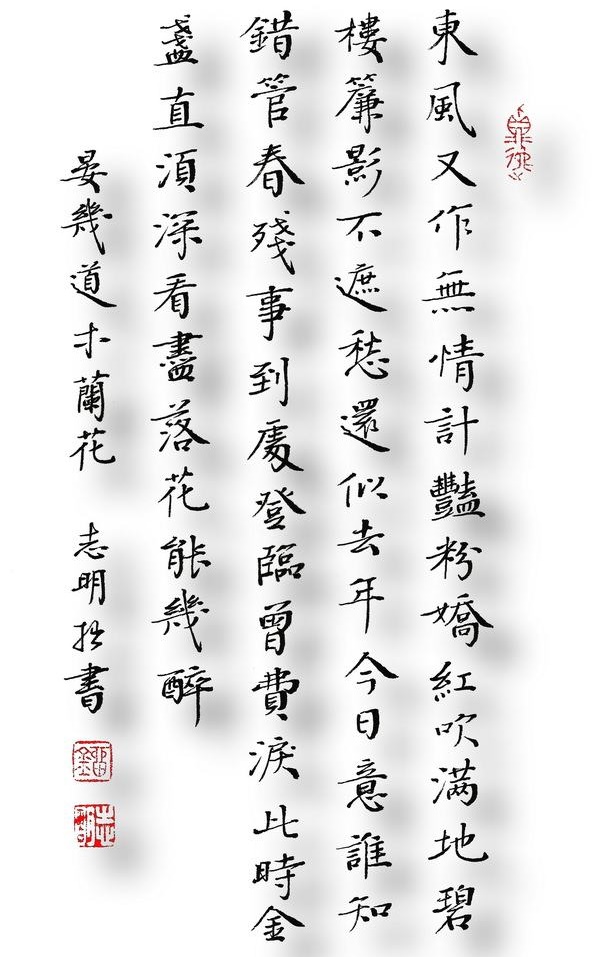 東風又作無情計豔粉嬌紅吹滿地碧
樓簾影不遮愁還似去年今日意誰知
錯管春殘事到處登臨曾費淚此時金
盞直須深看盡落花能幾醉
晏幾道木蘭花 志明拙書
志明